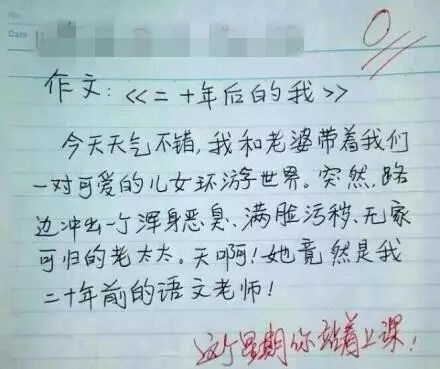 Date
0
作文:《二十年后的我》
今天天气不错,我和老婆带着我们
一对可爱的儿女环游世界。突然,路
边冲出一个浑身恶臭、满脸污秽、无家
可归的老太太。天啊!她竟然是我
二十年前的语文老师!
这个星期你站着上课!